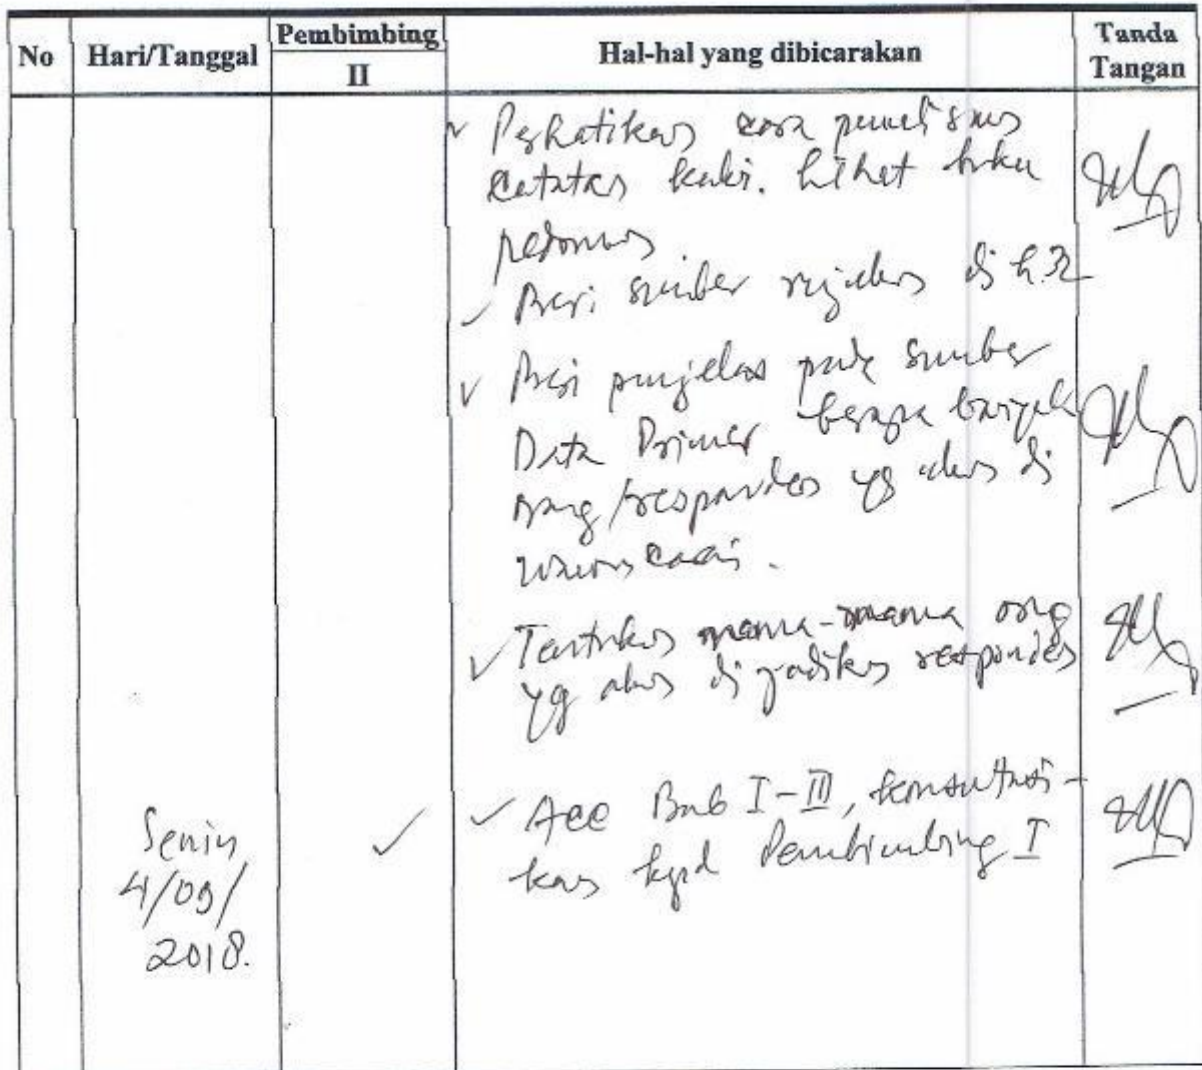 No Hari/Tanggal Pembimbing II Hal-hal yang dibicarakan Tanda Tangan
Perhatikan cara penulisan
catatan kaki. Lihat buku
pedoman
Beri sumber rujukan di h.32
Beri penjelas pada sumber
Data Primer berapa banyak
orang/responden yg akan di
wawancarai.
Tentukan nama-nama orng
yg akan di jadikan responden
Senin
4/09/
2018.
Acc Bab I-III, konsultasi-
kan kpd Pembimbing I